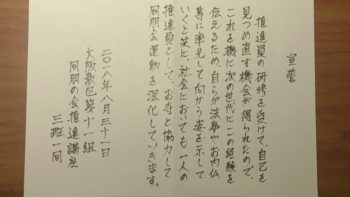 宣誓
推進員の研修を受けて、自己を
見つめ直す機会が得られたので
これを機に次の世代にこの経験を
伝えるため、自らが法事やお内仏
等に率先して向かう姿を示して
いくと共に、社会においても一人の
推進員として、お寺と協力して
同朋会運動を深化していきます。
二〇一八年八月三十一日
大阪教区第十一組
同朋の会推進講座
三班一同